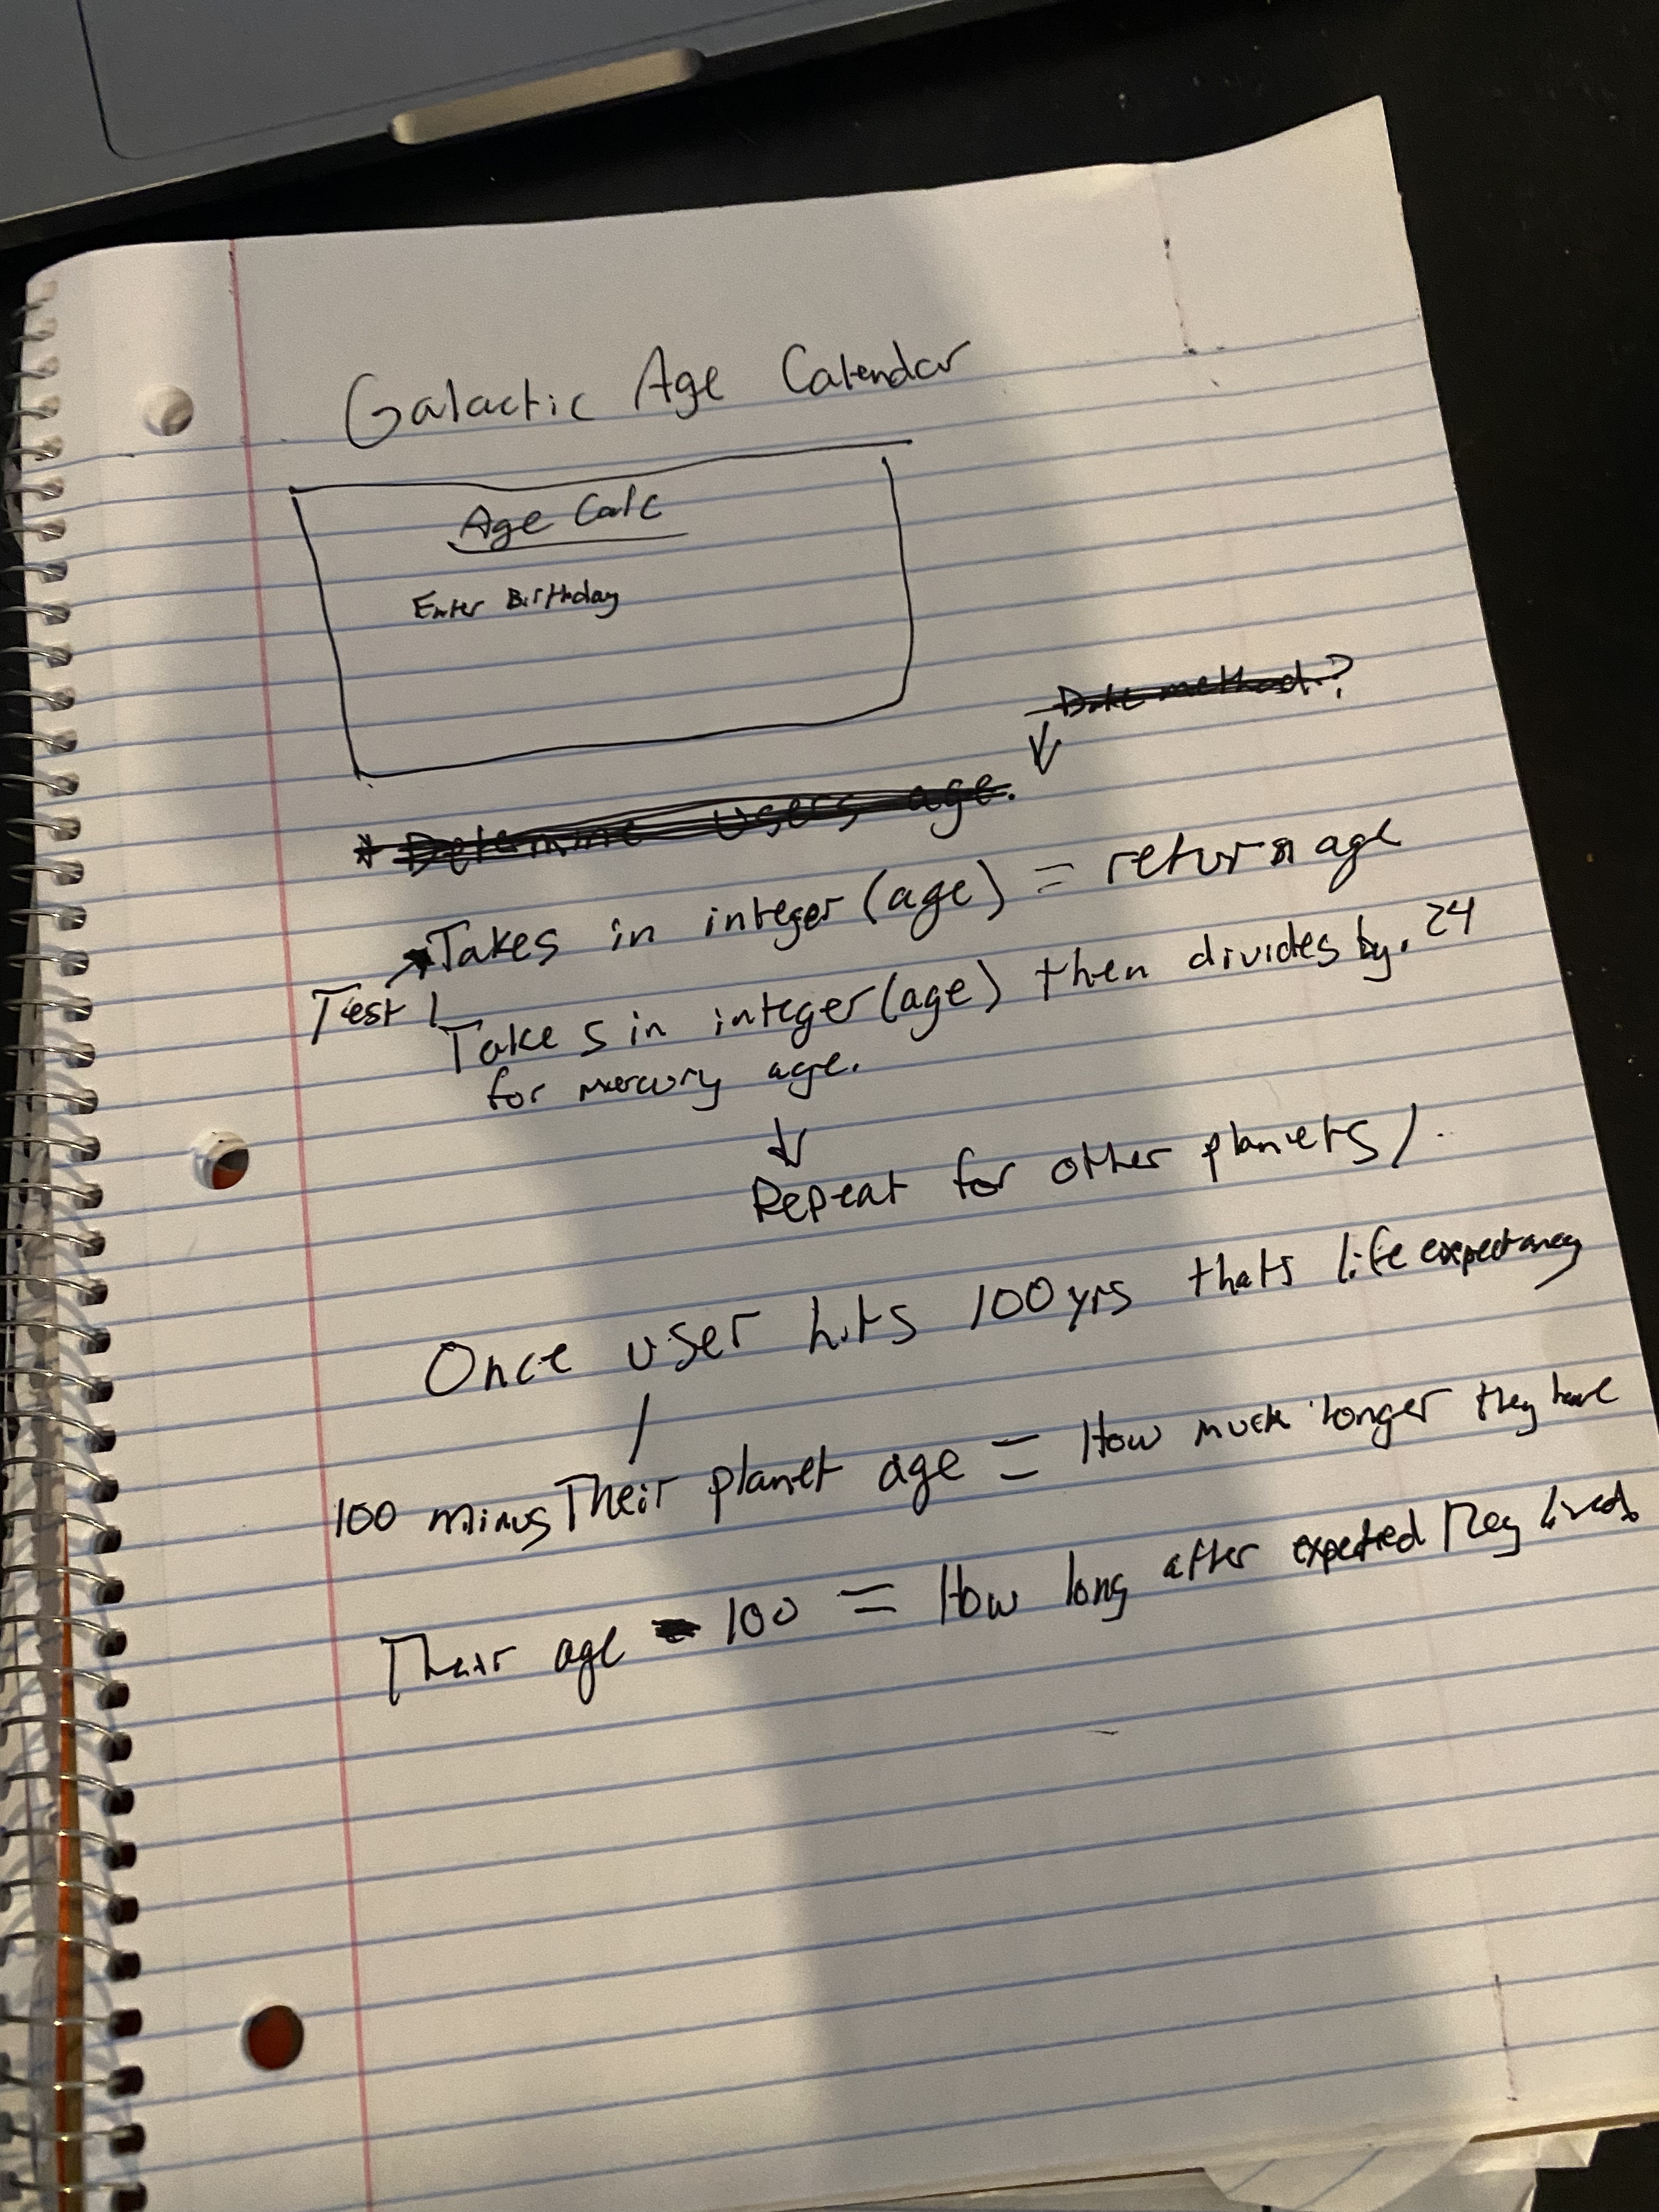 Galactic Age Calendar
Age Calc
Enter Birthday
Date method?
* Determine users age.
Takes in integer (age) = return age
Test 1
Takes in integer (age) then divides by .24
for mercury age.
Repeat for other planets
Once user hits 100 yrs thats life expectancy
100 minus Their planet age = How much longer they have
Their age - 100 = How long after expected They lived.